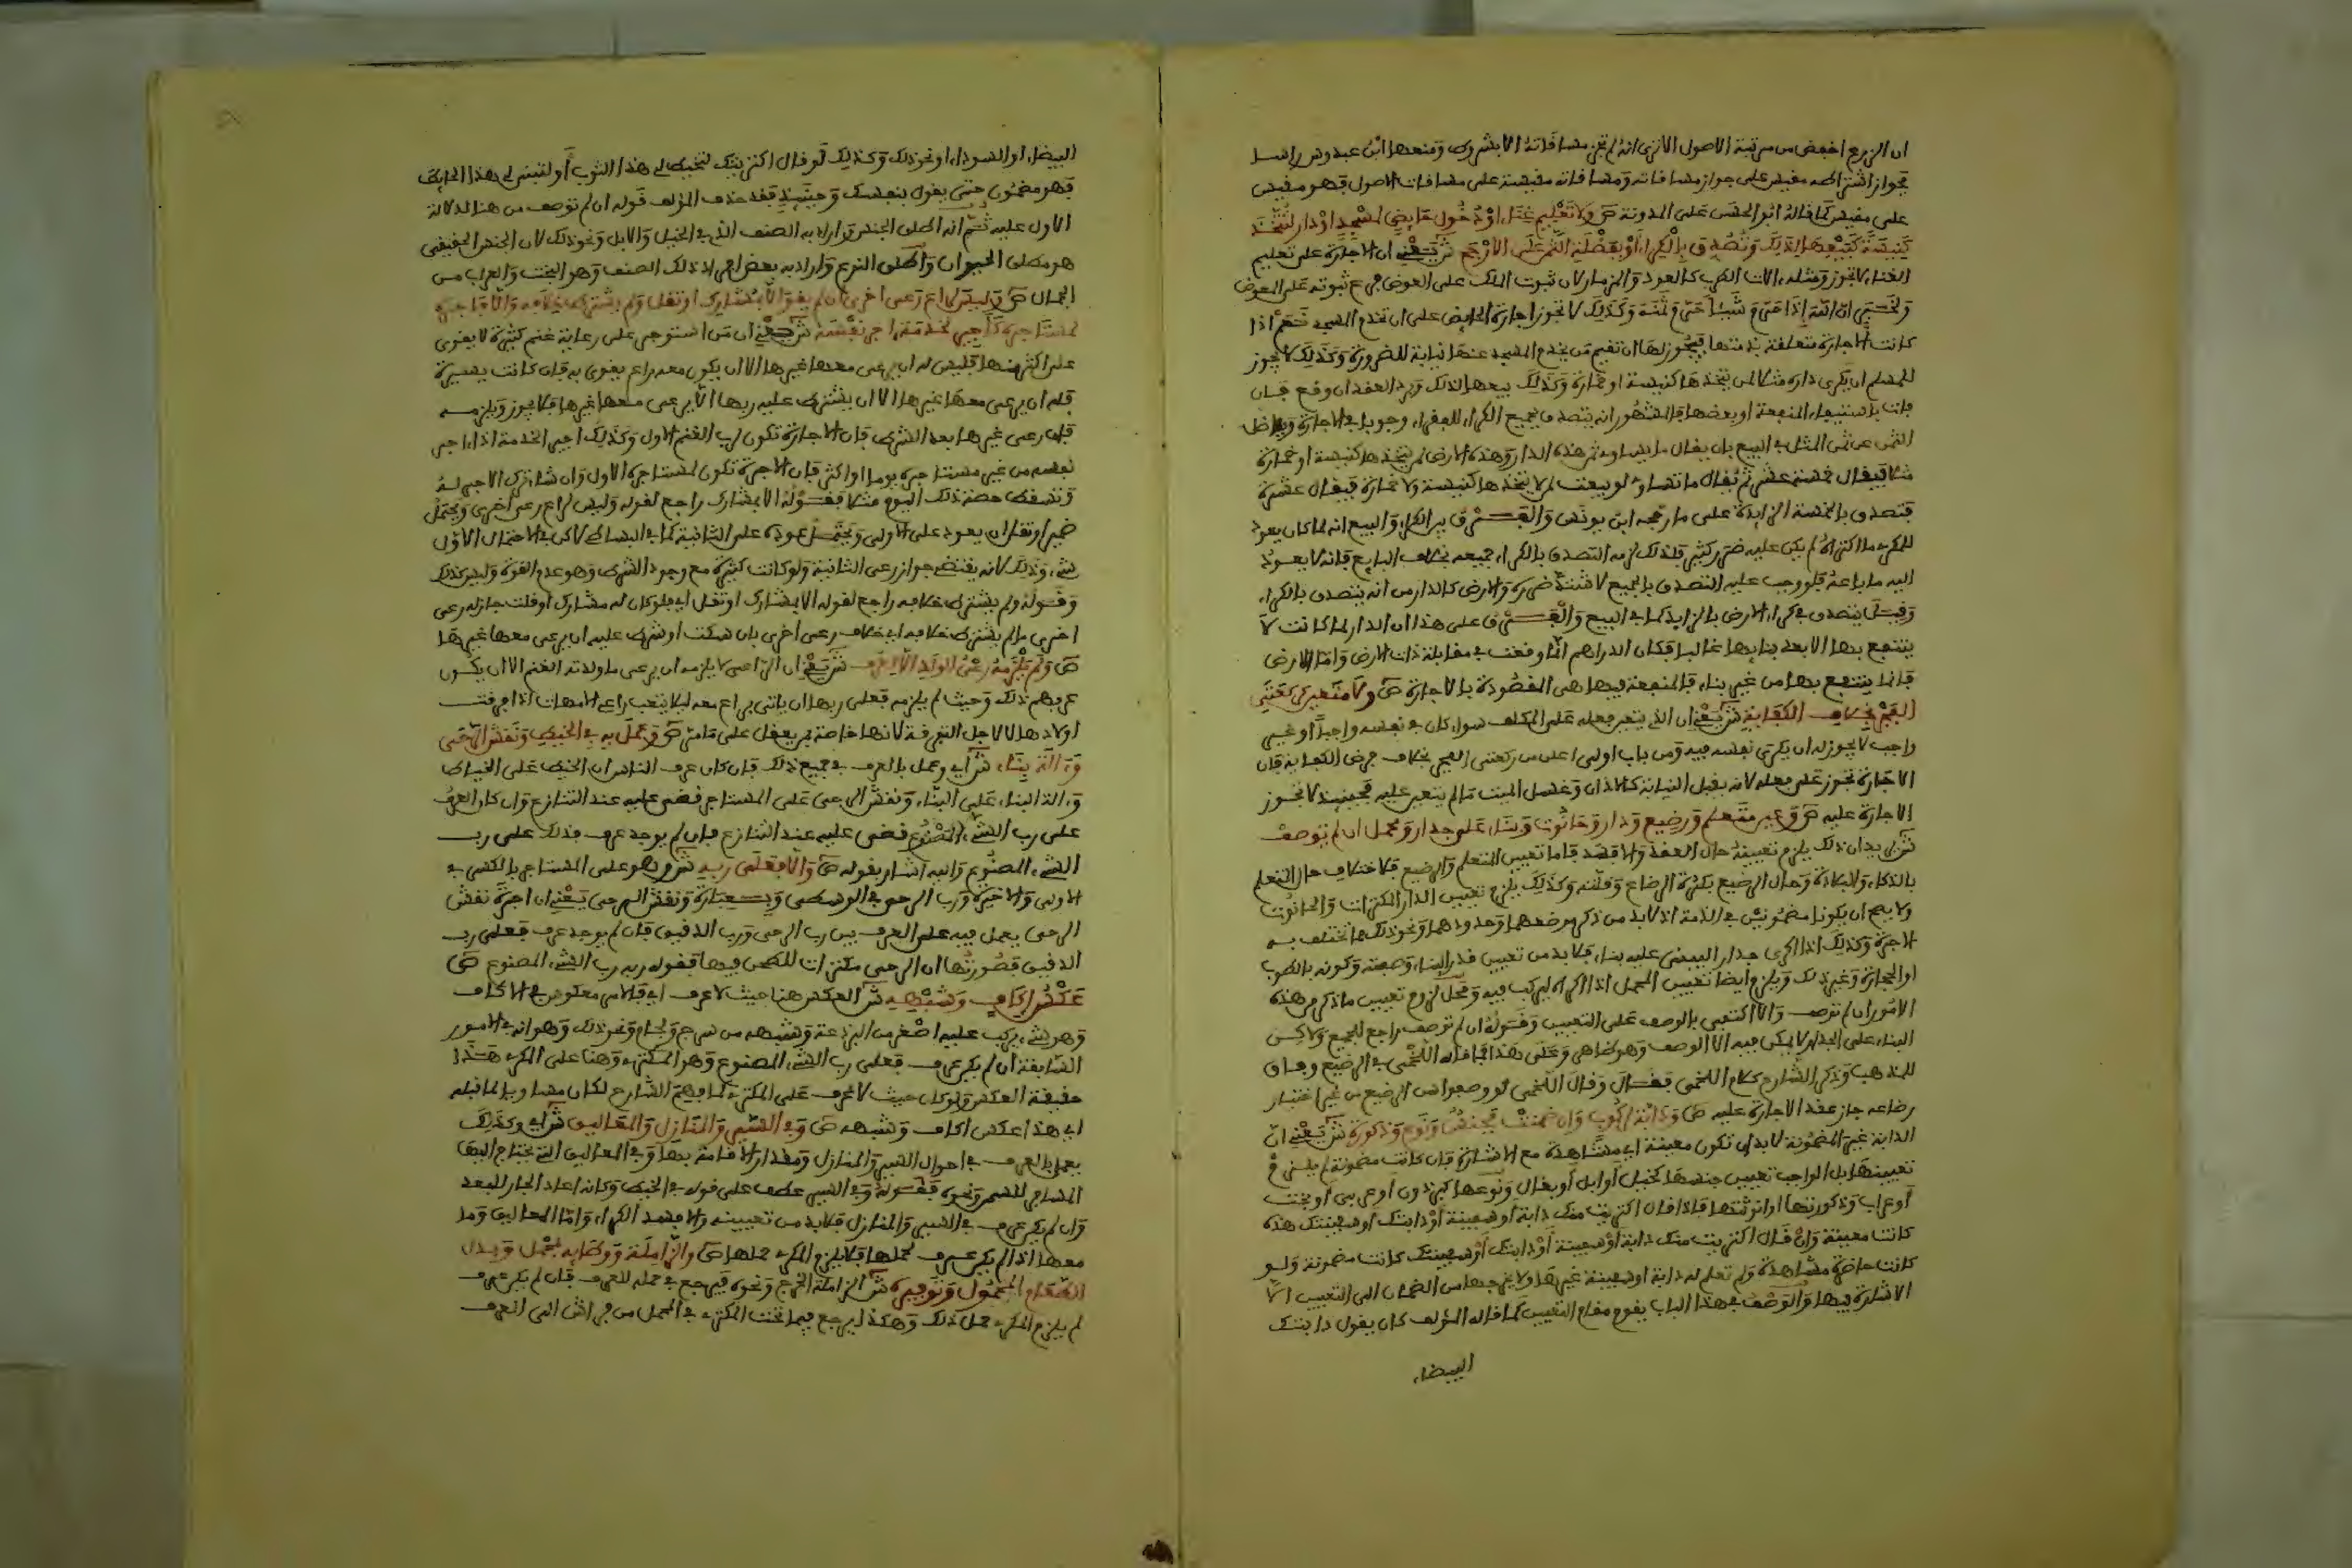 ان الزرع اخفض من مرتبة الاصول الا ترى انه لم تجز مساقاته الا بشروط ومنعها ابن عبدوس راسا
فجواز اشتراطه مقيس على جواز مساقاته ومساقاته مقيسة على مساقات الاصول فهو مقيس
على مقيس كما قاله ابو الحسن على المدونة ص ولا تعليم غناء او دخول حايض لمسجد او دار لتتخذ
كنيسة كبيعها لذلك وتصدق بالكراء او بفضلة الثمن على الارجح ش يعني ان الاجارة على تعليم
الغناء لا تجوز ومثله الات الطرب كالعود والمزمار لان ثبوت الملك على العوض فرع ثبوته على المعوض
ولخبر ان الله إذا حرم شيئا حرم ثمنه وكذلك لا تجوز اجارة الحايض على ان تخدم المسجد نعم اذا
كانت الاجارة متعلقة بذمتها فيجوز لها ان تقيم من يخدم المسجد عنها نيابة للضرورة وكذلك لا يجوز
للمسلم ان يكري داره مثلا لمن يتخذها كنيسة او خمارة وكذلك بيعها لذلك ويرد العقد ان وقع فان
فات باستيفاء المنفعة او بعضها فالمشهور انه يتصدق بجميع الكراء للفقراء وجوبا في الاجارة وبفاضل
الثمن عن ثمن المثل في البيع بان يقال ما يساوي ثمن هذه الدار وهذه الارض لمن يتخذها كنيسة او خمارة
مثلا فيقال خمسة عشر ثم يقال ما تساوي لو بيعت لمن لا يتخذها كنيسة ولا خمارة فيقال عشرة
فتصدق بالخمسة الزايدة على ما رجحه ابن يونس والفرق بين الكراء والبيع انه لما كان يعود
للمكري ما اكراه لم يكن عليه ضرر كثير فلذلك لزمه التصدق بالكراء جميعه بخلاف البايع فانه لا يعود
اليه ما باعه فلو وجب عليه التصدق بالجميع لاشتد ضرره والارض كالدار من انه يتصدق بالكراء
وقيل يتصدق في كراء الارض بالزايد كما في البيع والفرق على هذا ان الدار لما كانت لا
ينتفع بها الا بعد بنايها غالبا فكان الدراهم انما وقعت في مقابلة ذات الارض واما الارض
فانما ينتفع بها من غير بناء فالمنفعة فيها هي المقصودة بالاجارة ص ولا متعين كركعتي
الفجر بخلاف الكفاية ش يعني ان الذي يتعين فعله على المكلف سواء كان في نفسه واجبا او غير
واجب لا يجوز له ان يكري نفسه فيه ومن باب اولى اعلى من ركعتي الفجر بخلاف فرض الكفاية فان
الاجارة تجوز على فعله لانه يقبل النيابة كالاذان وغسل الميت ما لم يتعين عليه فحينئذ لا تجوز
الاجارة عليه ص وعين متعلم ورضيع ودار وحانوت وبناء على جدار ومحمل ان لم توصف
ش يريد ان ذلك يلزم تعيينه حال العقد والا فسد فاما تعيين المتعلم والرضيع فلاختلاف حال المتعلم
بالذكاء والبلادة وحال الرضيع بكثرة الرضاع وقلته وكذلك يلزم تعيين الدار المكترات والحانوت
ولا يصح ان يكونا مضمونين في الذمة اذ لا بد من ذكر موضعهما وحدودهما ونحو ذلك مما تختلف به
الاجرة وكذلك اذا اكرى جدار ليبني عليه بناء فلا بد من تعيين قدر البناء وصفته وكونه بالطوب
او الحجارة وغير ذلك ويلزم ايضا تعيين المحمل اذا اكراه ليركب فيه ومحل لزوم تعيين ما ذكر من هذه
الامور ان لم توصف والا اكتفي بالوصف على التعيين وقوله ان لم توصف راجع للجميع ولاكن
البناء على الجدار لا يمكن فيه الا الوصف وهو ظاهر وعلى هذا فما قاله اللخمي في الرضيع وفاق
للمذهب وذكر الشارح كلام اللخمي فقال وقال اللخمي لو وصفوا سن الرضيع من غير اختبار
رضاعه جاز عقد الاجارة عليه ص ودابة لركوب وان ضمنت فجنس ونوع وذكورة ش يعني ان
الدابة غير المضمونة لا بد ان تكون معينة اي مشاهدة مع الاشارة فان كانت مضمونة لم يلزم
تعيينها بل الواجب تعيين جنسها كخيل او ابل او بغال ونوعها كبرذون او عربي او بخت
او عراب وذكورتها او انوثتها فاذا قال اكتريت منك دابة او سفينة او دابتك او سفينتك هذه
كانت معينة وان قال اكتريت منك دابة او سفينة او دابتك او سفينتك كانت مضمونة ولو
كانت حاضرة مشاهدة ولم تعلم له دابة او سفينة غيرها ولا يخرجها من الضمان الى التعيين الا
الاشارة اليها والوصف في هذا الباب يقوم مقام التعيين كما قاله المؤلف كان يقول دابتك
البيضاء
البيضاء او السوداء او نحو ذلك وكذلك لو قال اكتريتك لتخيط لي هذا الثوب أو لتبني لي هذا الحايط
فهو مضمون حتى يقول بنفسك وحينئذ فقد حذف المؤلف قوله ان لم توصف من هنا لدلالة
الاول عليه ثم انه اطلق الجنس واراد به الصنف الذي في الخيل والابل ونحو ذلك لان الجنس الحقيقي
هو مطلق الحيوان واطلق النوع واراد به بعض افراد ذلك الصنف وهو البخت والعراب من
الجمال ص وليس لراع رعي اخرى ان لم يقو الا بمشارك او تقل ولم يشترط خلافه والا فاجره
لمستاجره كاجير لخدمة اجر نفسه ش يعني ان من استوجر على رعاية غنم كثيرة لا يقوى
على اكثر منها فليس له ان يرعى معها غيرها الا ان يكون معه راع يقوى به فان كانت يسيرة
فله ان يرعى معها غيرها الا ان يشترط عليه ربها الا يرعى معها غيرها فلا يجوز ويلزمه
فان رعى غيرها بعد الشرط فان الاجارة تكون لرب الغنم الاول وكذلك اجير الخدمة اذا اجر
نفسه من غير مستاجره يوما او اكثر فان الاجرة تكون لمستاجره الاول وان شاء ترك الاجر له
وتسقط حصة ذلك اليوم مثلا فقوله الا بمشارك راجع لقوله وليس لراع رعي اخرى ويحتمل
ضمير او تقل ان يعود على الاولى ويحتمل عوده على الثانية كما في البساطي لاكن في الاحتمال الاول
شيء وذلك لانه يقتضي جواز رعي الثانية ولو كانت كثيرة مع وجود الشرط وهو عدم القوة وليس كذلك
وقوله ولم يشترط خلافه راجع لقوله الا بمشارك او تقل اي فلو كان له مشارك او قلت جاز له رعي
اخرى ما لم يشترط خلافه اي خلاف رعي اخرى بان سكت او شرط عليه ان يرعى معها غيرها
ص ولم يلزمه رعي الولد الا لعرف ش يعني ان الراعي لا يلزمه ان يرعى ما ولدته الغنم الا ان يكون
عرفهم ذلك وحيث لم يلزمه فعلى ربها ان ياتي براع معه ليلا يتعب راعي الامهات اذا فرقت
اولادها لا لاجل التفرقة لانها خاصة بمن يعقل على ما مر ص وعمل به في الخيط ونقش الرحى
وءالة بناء ش أي وعمل بالعرف في جميع ذلك فان كان عرف الناس ان الخيط على الخياط
وءالة البناء على البناء ونقش الرحى على المستاجر قضي عليه عند التنازع وان كان العرف
على رب الشيء المصنوع قضي عليه عند التنازع فان لم يوجد عرف فذلك على رب
الشيء المصنوع واليه اشار بقوله ص والا فعلى ربه ش وهو على المستاجر بالكسر في
الاولى والاخيرة ورب الرحى في الوسطى وعبارة ونقش الرحى يعني ان اجرة نقش
الرحى يعمل فيه على العرف بين رب الرحى ورب الدقيق فان لم يوجد عرف فعلى رب
الدقيق فصورتها ان الرحى مكترات للطحن فيها فقوله ربه رب الشيء المصنوع ص
عكس إكاف وشبهه ش العكس هنا حيث لا عرف اي فالامر معكوس في الاكاف
وهو شيء يركب عليه اصغر من البرذعة وشبهه من سرج ولجام ونحو ذلك وهو انه في الامور
السابقة ان لم يكن عرف فعلى رب الشيء المصنوع وهو المكتري وهنا على المكري هذا
حقيقة العكس ولو كان حيث لا عرف على المكتري كما فهم الشارح لكان مساويا لما قبله
اي هذا عكس اكاف وشبهه ص وفي السير والمنازل والمعاليق ش أي وكذلك
يعمل بالعرف في احوال السير والمنازل ومقدار الاقامة بها وفي المعاليق التي يحتاج اليها
المسافر للسمن ونحوه فقوله وفي السير عطف على قوله في الخيط وكانه اعاد الجار للبعد
وان لم يكن عرف في السير والمنازل فلا بد من تعيينه والا فسد الكراء واما المعاليق وما
معها اذا لم يكن عرف لحملها فلا يلزم المكري حملها ص والزاملة ووطايه بمحمل وبدل
الطعام المحمول وتوفيره ش الزاملة الخرج ونحوه فيرجع في حمله للعرف فان لم يكن عرف
لم يلزم المكري حمل ذلك وهكذا يرجع فيما تحت المكتري في المحمل من فراش الى العرف